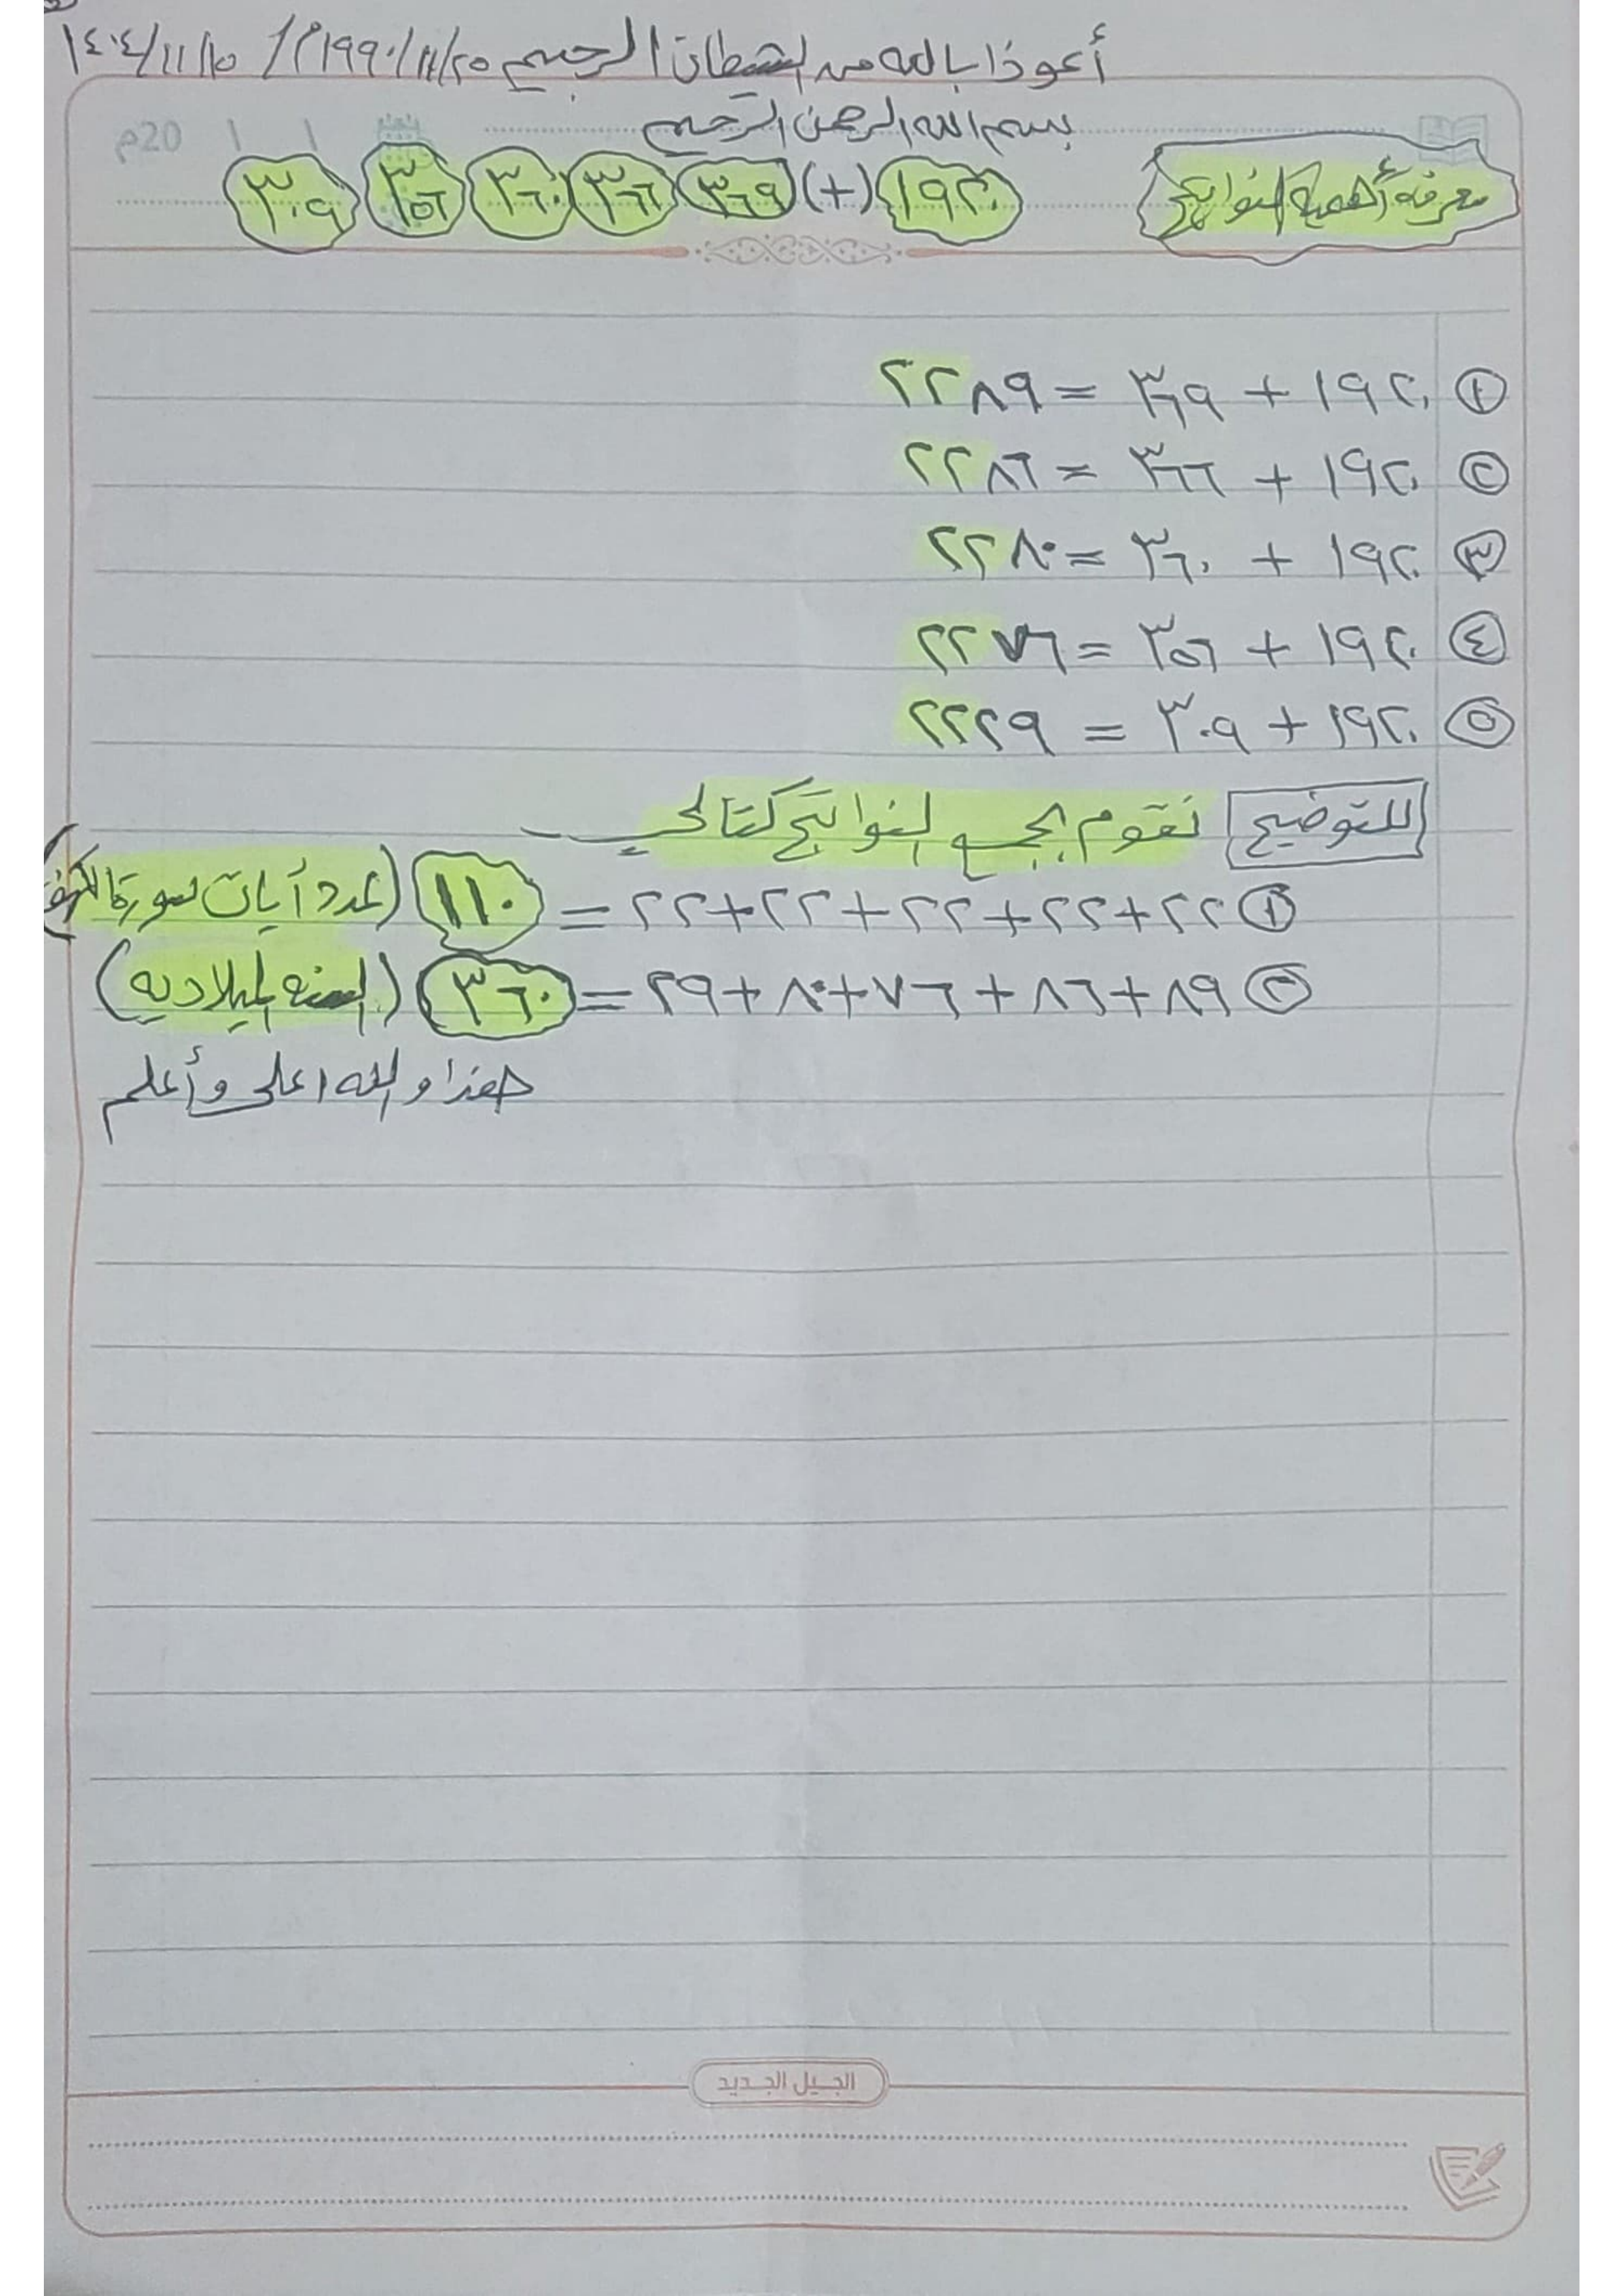 أعوذ بالله من الشيطان الرجيم ٢٥/١١/١٩٩٠م // ١٥/١١/١٤٠٤
بسم الله الرحمن الرحيم
/ / 20م
معرفة أهمية النواتج ١٩٢٠ (+) ٣٦٩ ٣٦٦ ٣٦٠ ٣٥٦ ٣٠٩
١ ١٩٢٠ + ٣٦٩ = ٢٢٨٩
٢ ١٩٢٠ + ٣٦٦ = ٢٢٨٦
٣ ١٩٢٠ + ٣٦٠ = ٢٢٨٠
٤ ١٩٢٠ + ٣٥٦ = ٢٢٧٦
٥ ١٩٢٠ + ٣٠٩ = ٢٢٢٩
للتوضيح نقوم بجمع النواتج كتالي
١ ٢٢+٢٢+٢٢+٢٢+٢٢ = ١١٠ (عدد أيات سورة الكهف)
٢ ٨٩+٨٦+٧٦+٨٠+٢٩ = ٣٦٠ (السنه الميلاديه)
هذا و الله اعلى وأعلم
الجيل الجديد